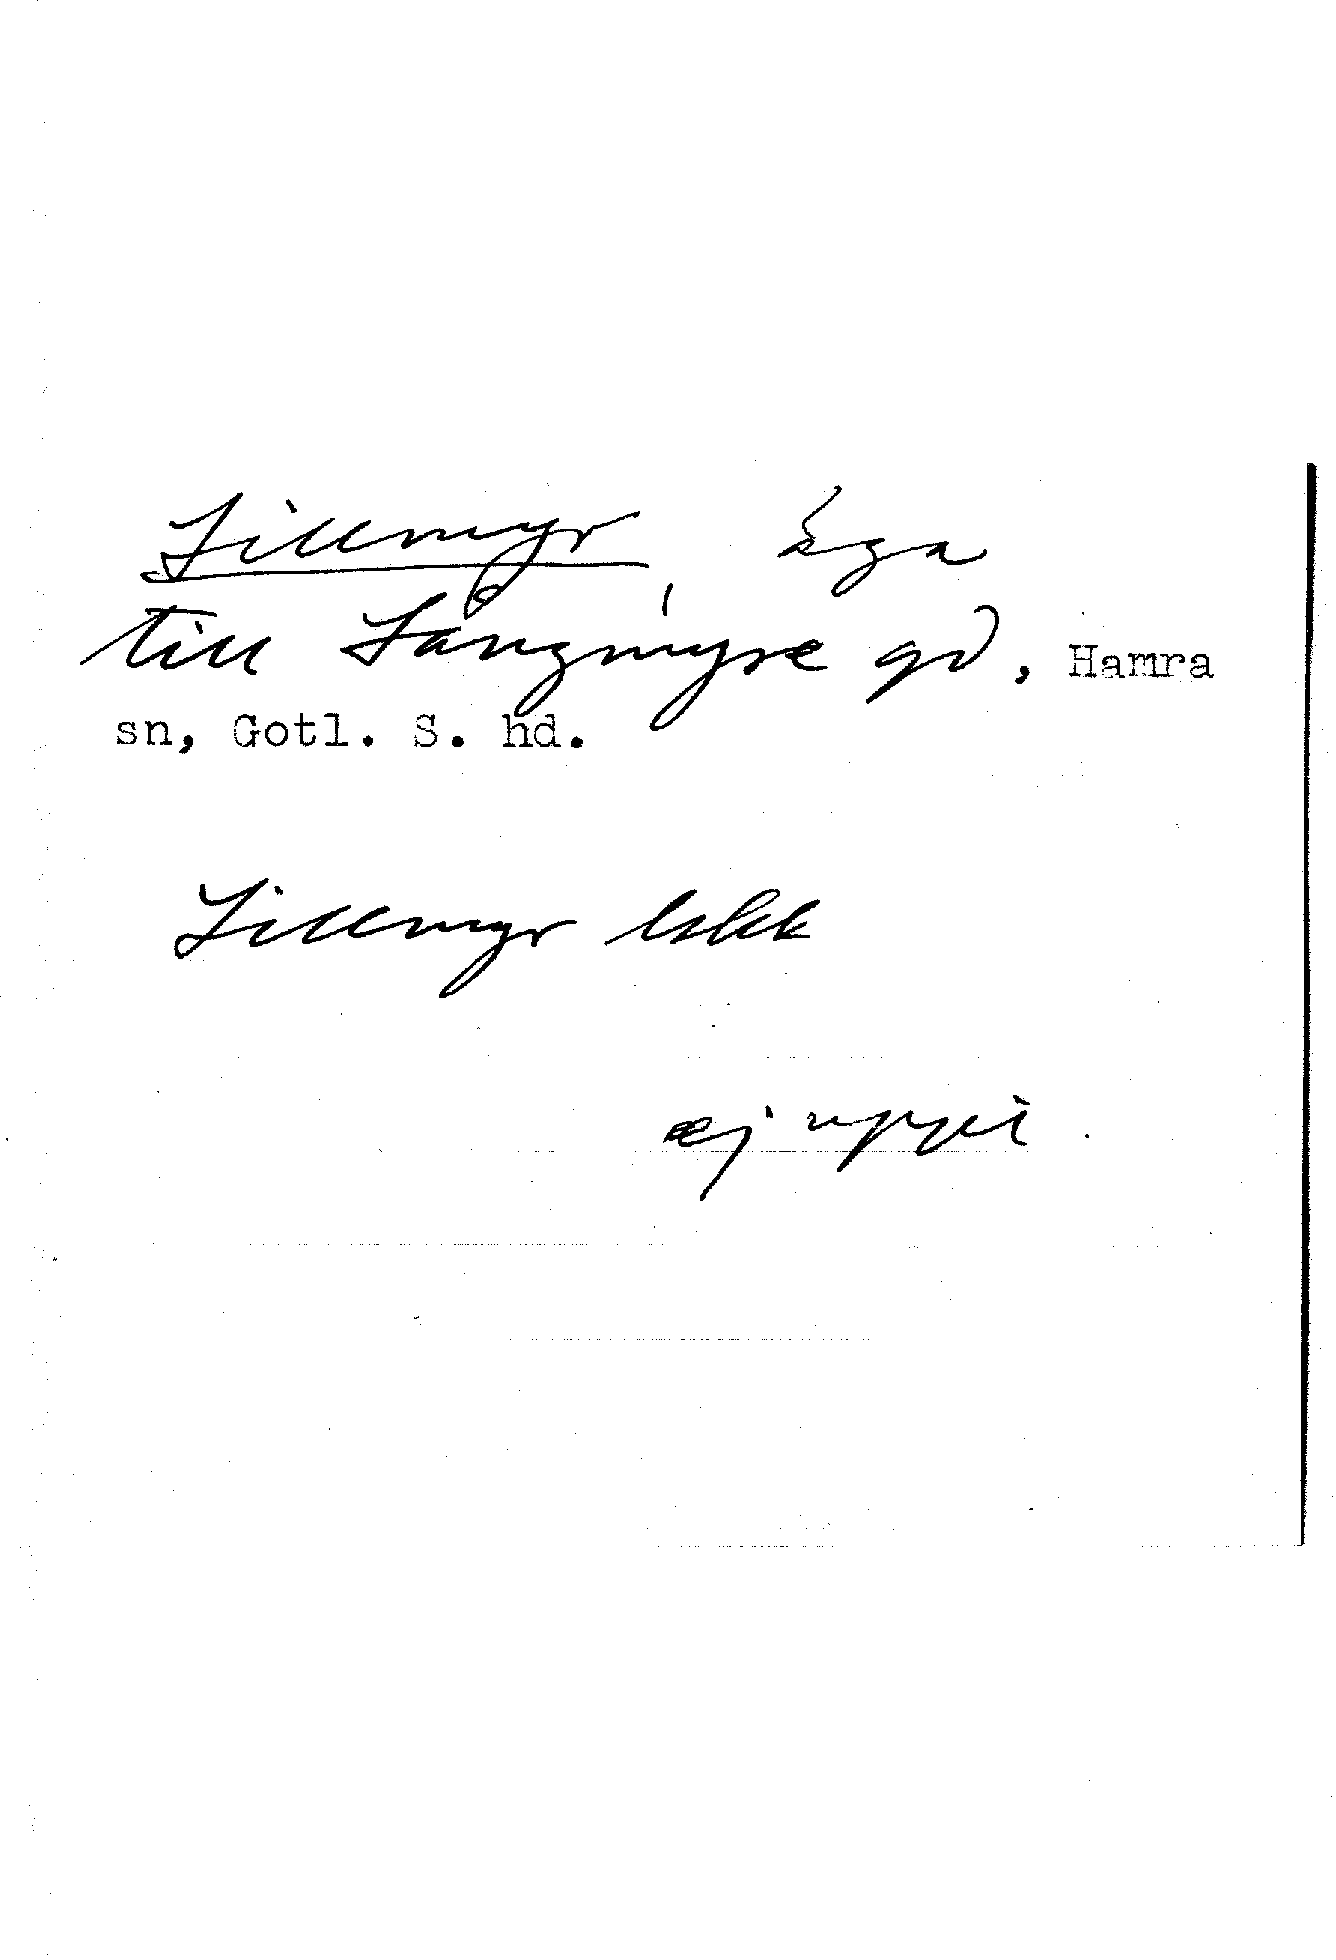 Lillmyr, äga
till Långmyre gd, Hamra
sn, Gotl. S. hd.
Lillmyr
ej uppt